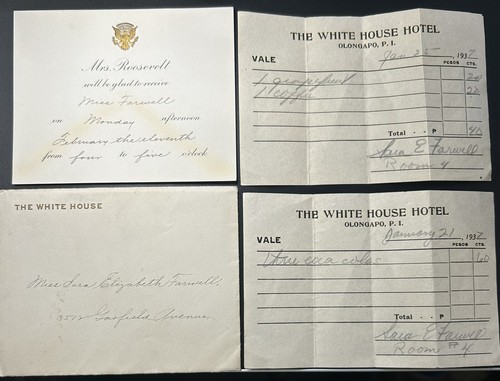 Mrs. Roosevelt
will be glad to receive
Miss Farwell
on Monday afternoon
February the eleventh
from four to five o'clock
THE WHITE HOUSE
Miss Sara Elizabeth Farwell,
3512 Garfield Avenue
THE WHITE HOUSE HOTEL
OLONGAPO, P. I.
VALE Jan 25, 1937
PESOS CTS.
1 grapefruit 20
1 coffee
Total - - P
Sara E Farwell
Room 4
THE WHITE HOUSE HOTEL
OLONGAPO, P. I.
VALE January 21, 1937
PESOS CTS.
three coca colas 60
Total - - P
Sara E Farwell
Room # 4